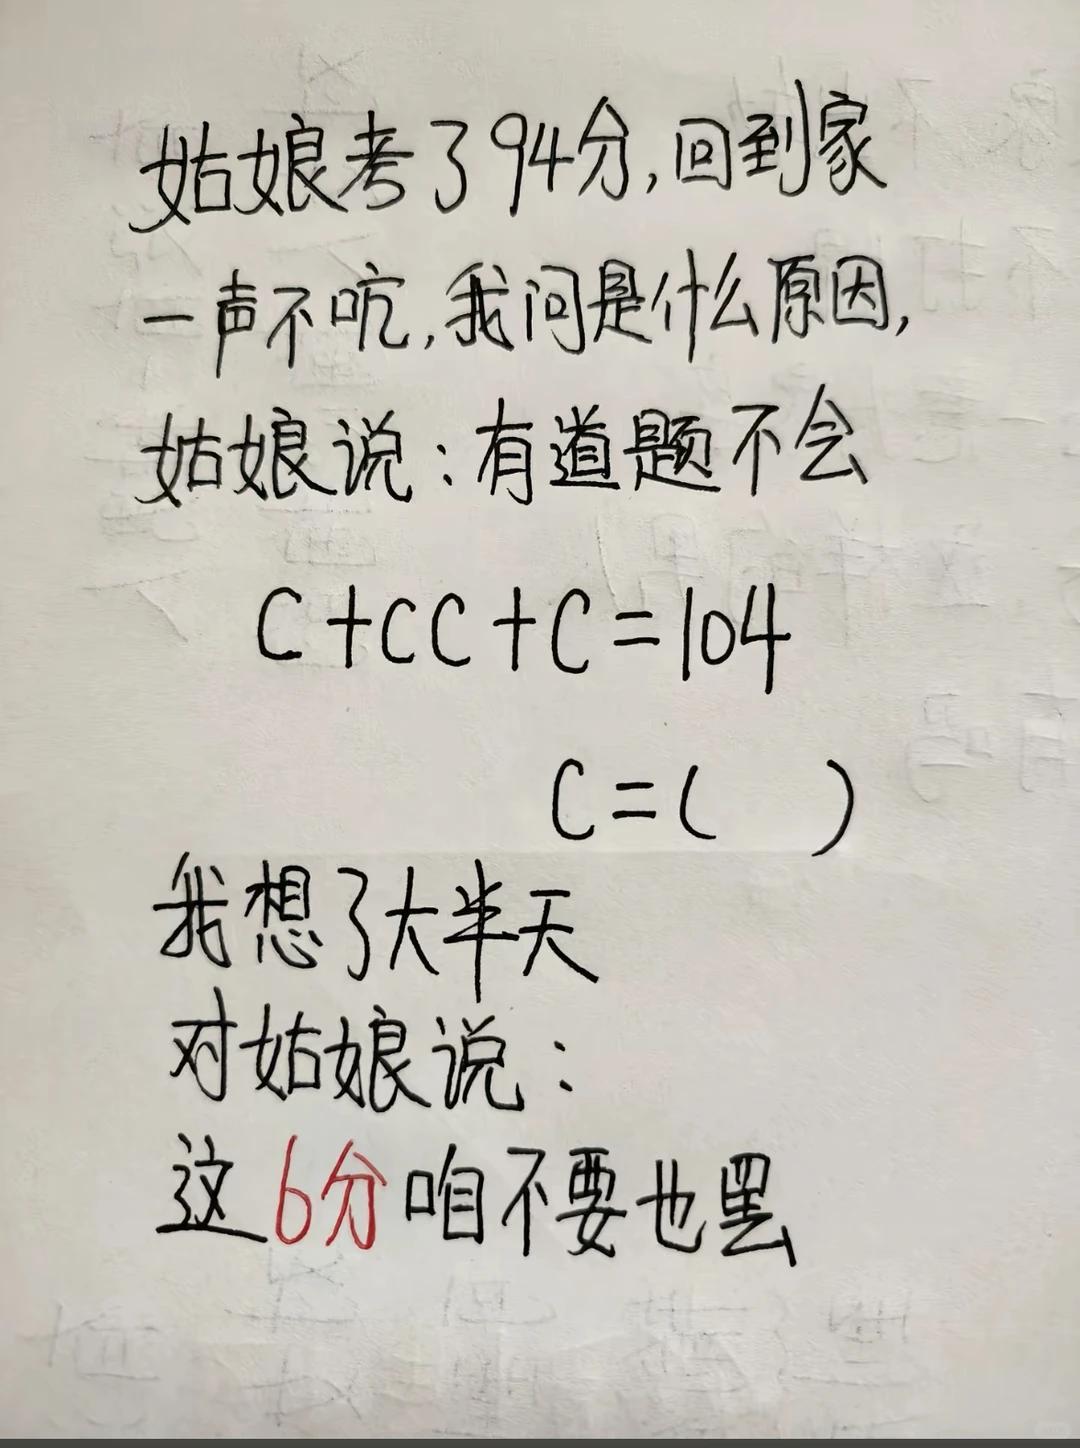 姑娘考了94分,回到家
一声不吭,我问是什么原因,
姑娘说:有道题不会
C+CC+C=104
C=( )
我想了大半天
对姑娘说:
这6分咱不要也罢